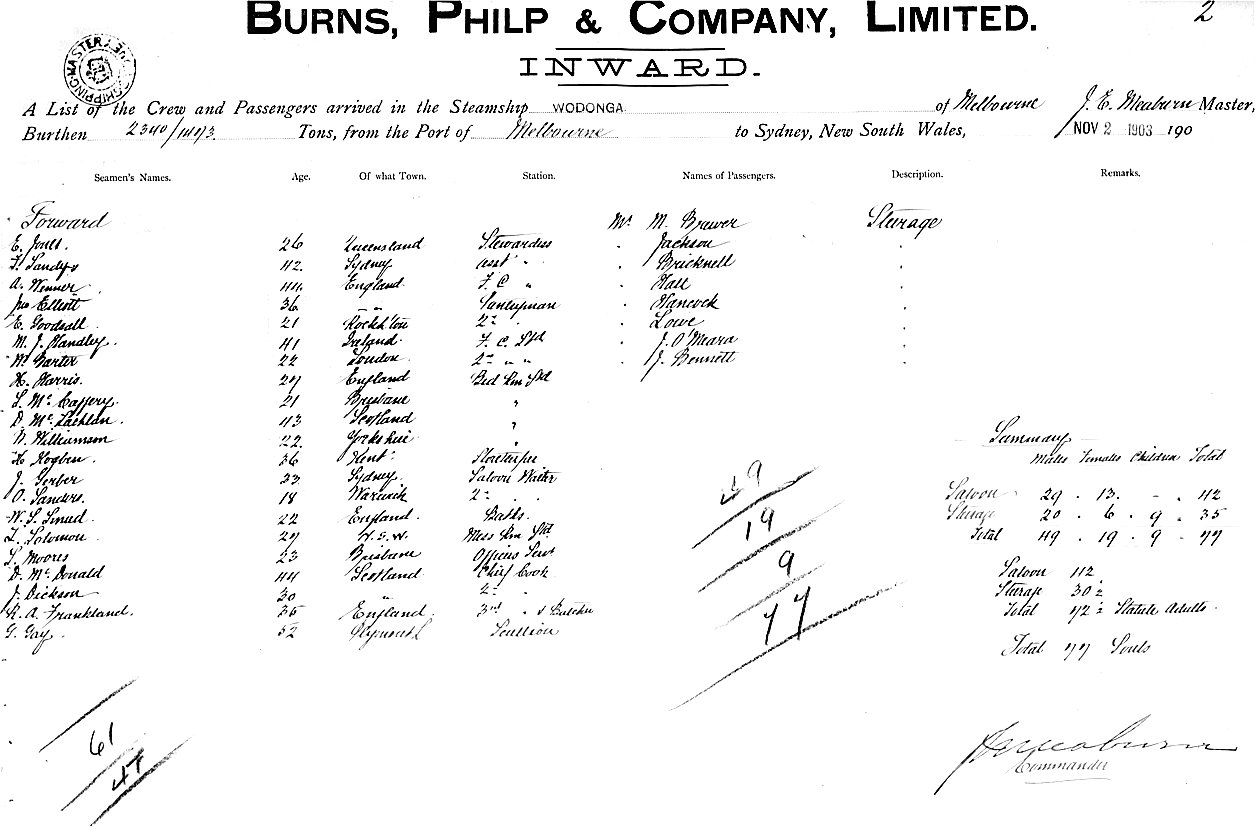 2
BURNS, PHILP & COMPANY, LIMITED.
INWARD.
SHIPPING MASTER
A List of the Crew and Passengers arrived in the Steamship WODONGA of Melbourne J. E. Meaburn Master,
Burthen 2340/1473 Tons, from the Port of Melbourne to Sydney, New South Wales, NOV 2 1903 190
Seamen's Names. Age. Of what Town. Station. Names of Passengers. Description. Remarks.
Forward Mr M. Brewer Steerage
E. Jones. 26 Queensland Stewardess . Jackson .
F. Sandys 42. Sydney asst " . Bricknell .
A. Wenner 44. England F. C " . Hall .
Jno Elliott 36 " " Pantryman . Hancock .
E. Goodsall 21 Rockh'ton 2nd . . Lowe .
M. J. Handley. 41 Ireland F. C. Std . J. O'Meara .
W. Barter 22 London 2nd " " . J. Bennett .
H. Harris. 27 England Bed Rm Std
S. McCaffery. 21 Brisbane "
D. McLachlan. 43 Scotland "
W. Williamson 22. Yorkshire "
H. Hogben. 36 Kent. Storekeeper
J. Gerber 23 Sydney Saloon Waiter
O. Sanders. 18 Warwick 2nd . .
W. S. 22 England. Baths.
L. Solomon. 27 N.S.W. Mess Rm Std
S. Moores 23 Brisbane Officers Servt
D. McDonald 44 Scotland Chief Cook
J. Dickson 30 " 2nd "
R. A. Frankland. 35 England 3rd " & Butcher
G. Gay. 52 Plymouth Scullion
Summary
Males Females Children Total
Saloon 29 . 13. - . 42
Steerage 20 . 6 . 9 . 35
Total 49 . 19 . 9 - 77
Saloon 42
Steerage 30½
Total 72½ Statute Adults.
Total 77 Souls
49
19
9
77
61
47
J E Meaburn
Commander